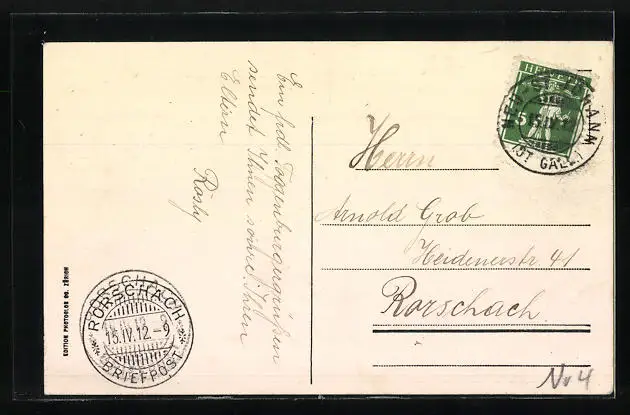 Ein frdl. Toggenburgergrüßen
sendet Ihnen sowie Ihren
Eltern
Rösly
EDITION PHOTOGLOB CO. ZÜRICH
RORSCHACH
15.IV.12-9
BRIEFPOST
HELVETIA
5
(ST. GALL.)
Herrn
Arnold Grob
Heidenerstr. 41
Rorschach
No 4